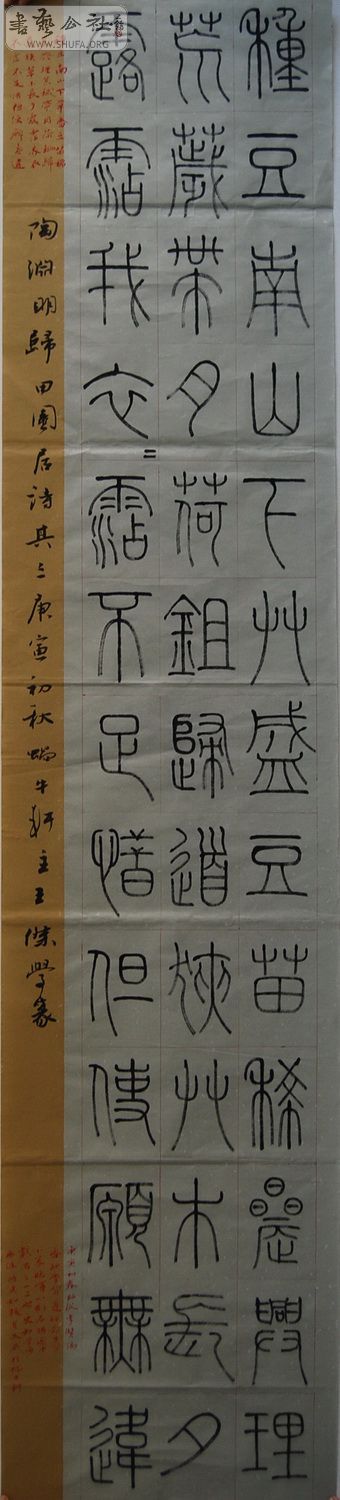 書藝公社
WWW.SHUFA.ORG
種豆南山下艸盛豆苗稀晨興理
荒薉帶月荷鉏歸道狹艸木長夕
露霑我衣=霑不足惜但使願無違
陶淵明歸田園居詩其三庚寅初秋蝸牛軒主王傑學篆